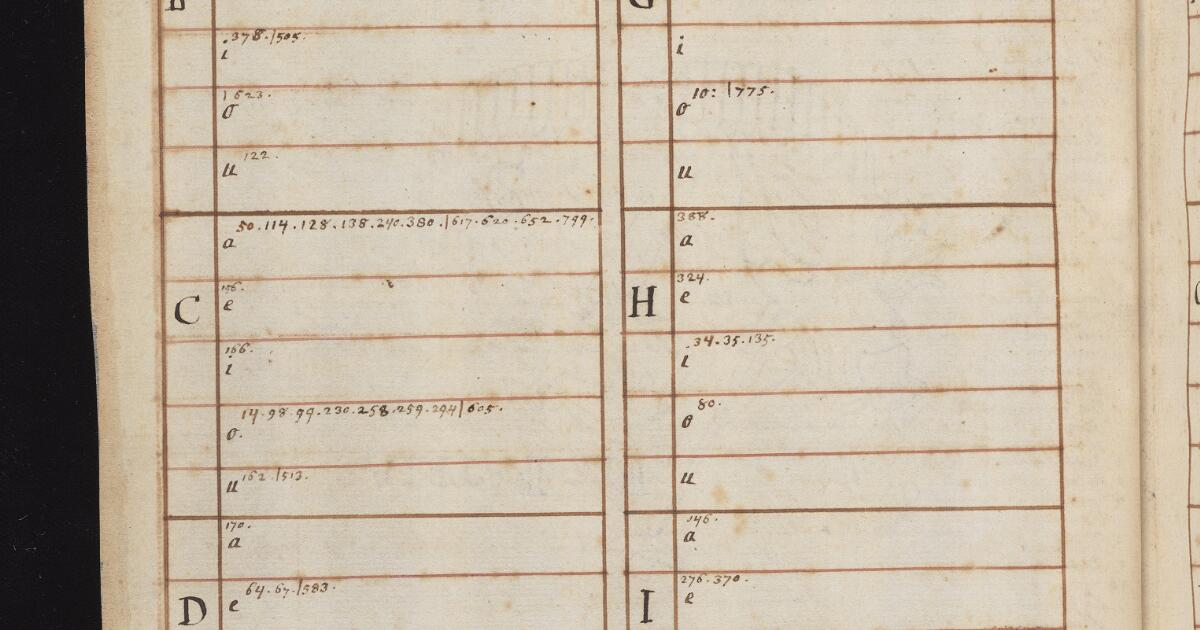 B
.378./505.
i
1623.
o
u 122.
50.114.128.138.240.380./617.620.652.799.
a
C
e
166.
i
14.98.99.230.258.259.294/605.
o.
u 162./513.
170.
a
64.67./583.
D e
G
i
10: /775.
o
u
388.
a
324.
H e
.34.35.135.
i
80.
o
u
146.
a
276.370.
I e